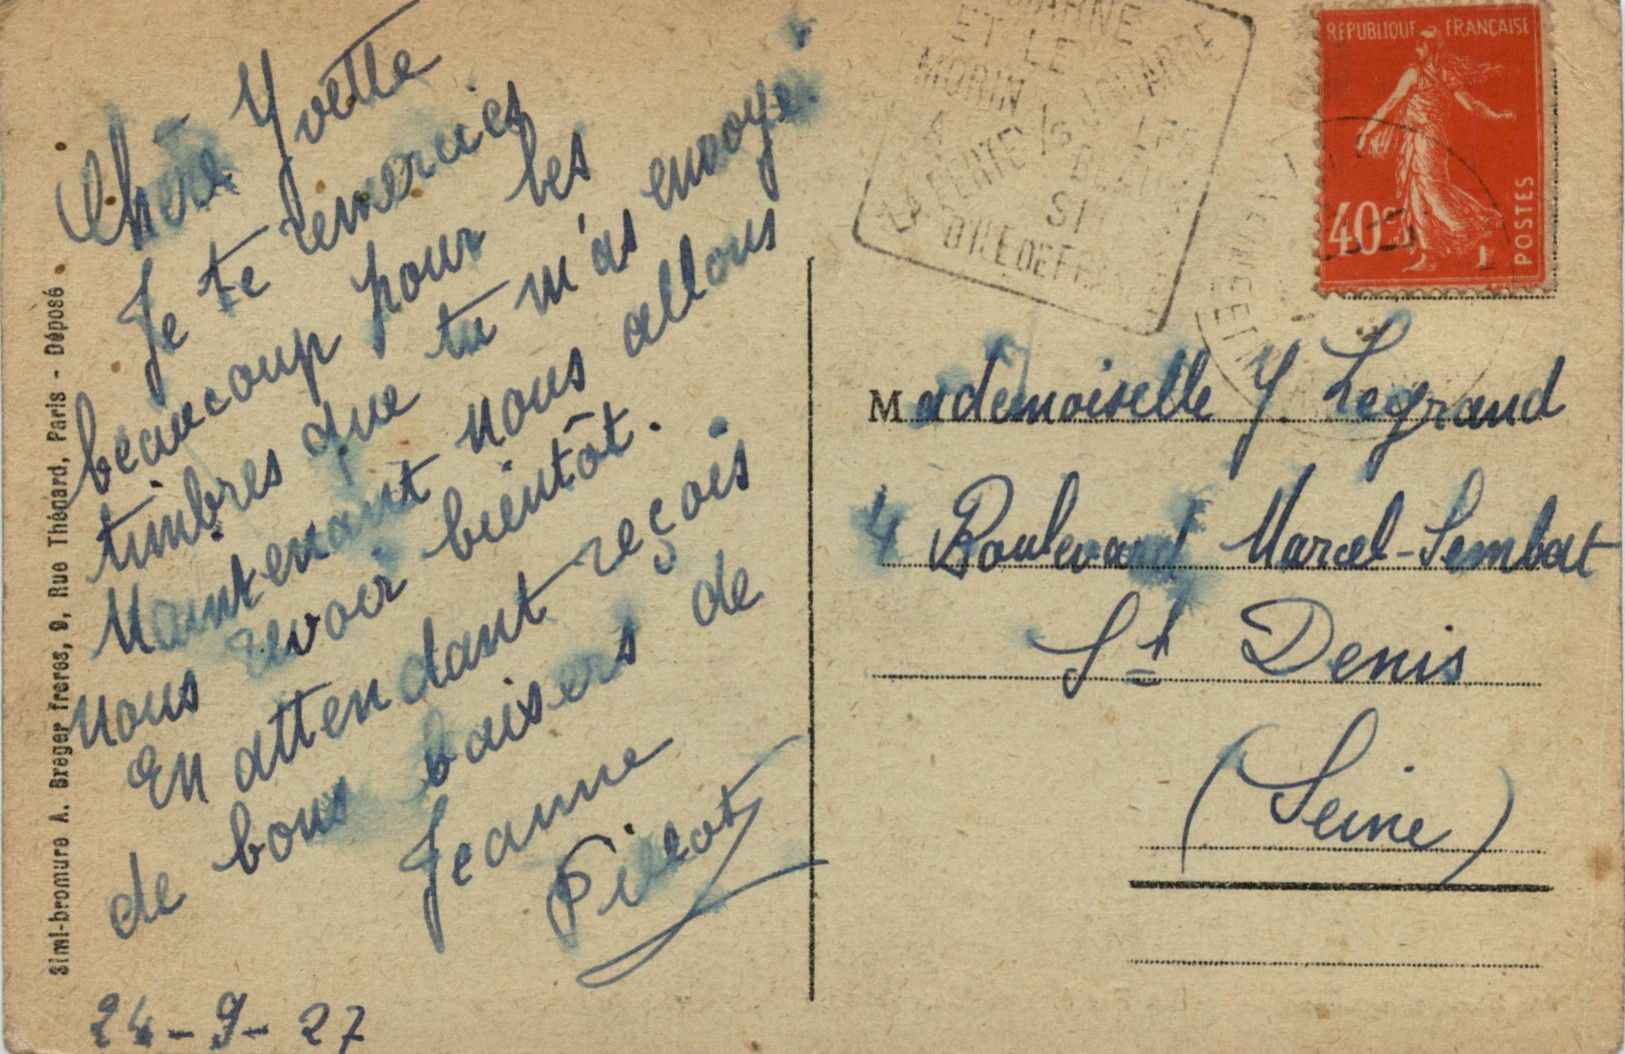 Chère Yvette
Je te remercies
beaucoup pour les
timbres que tu m'as envoyé.
Maintenant nous allons
nous revoir bientôt.
En attendant reçois
de bons baisers de
Jeanne
24-9-27
Simi-bromure A. Breger frères, 9, Rue Thénard, Paris - Déposé
MARNE
ET LE
MORIN
A
LA FERTE /s JOUARRE
LES
D'ILE DE FRANCE
RÉPUBLIQUE FRANÇAISE
40c
POSTES
Mademoiselle Y Legrand
4 Boulevard Marcel-Sembat
St Denis
(Seine)